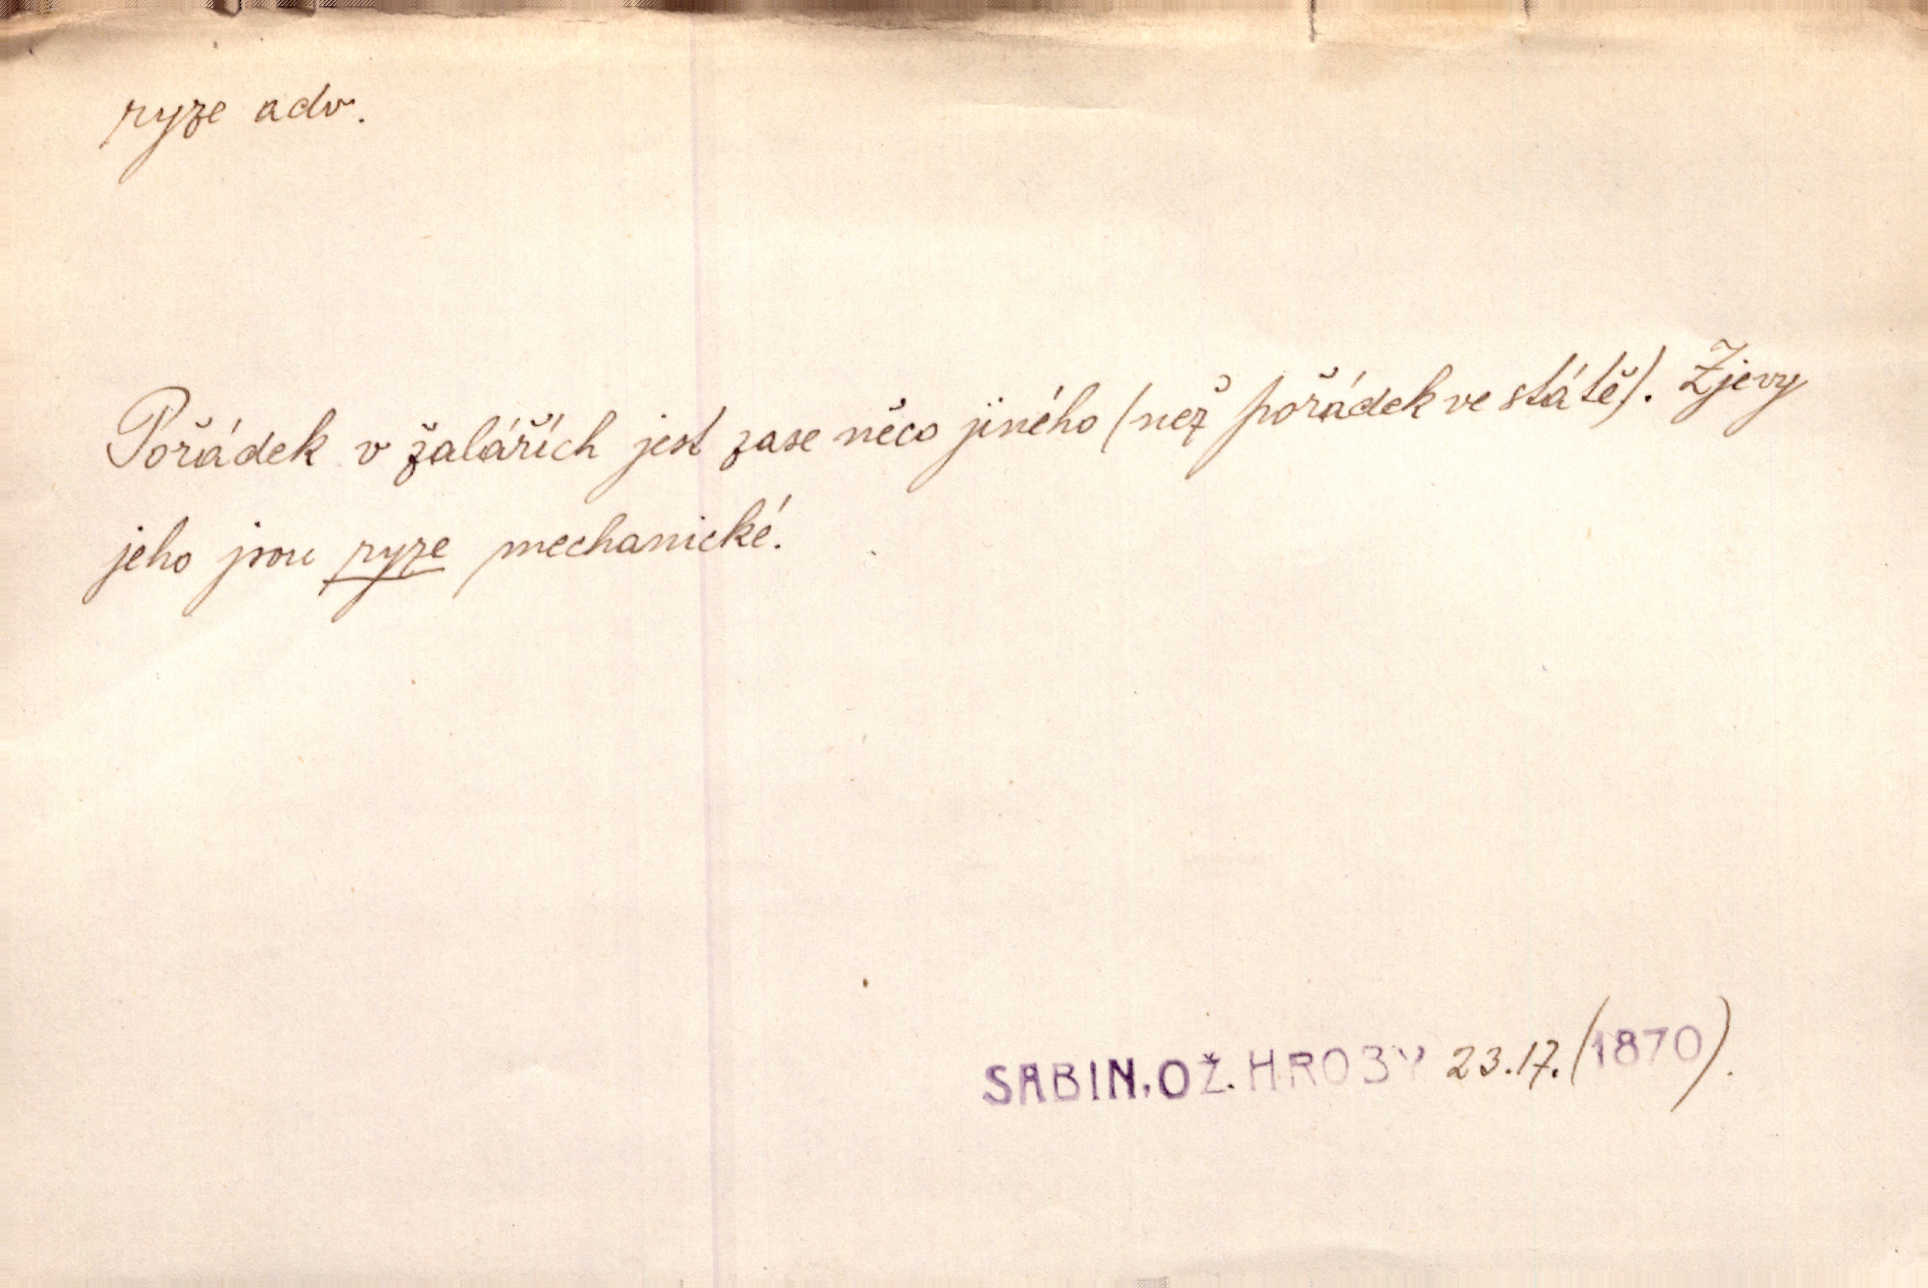 ryze adv.
Pořádek v žalářích jest zase něco jiného (než pořádek ve státě). Zjevy
jeho jsou ryze mechanické.
SABIN. OŽ. HROBY 23.17. (1870).